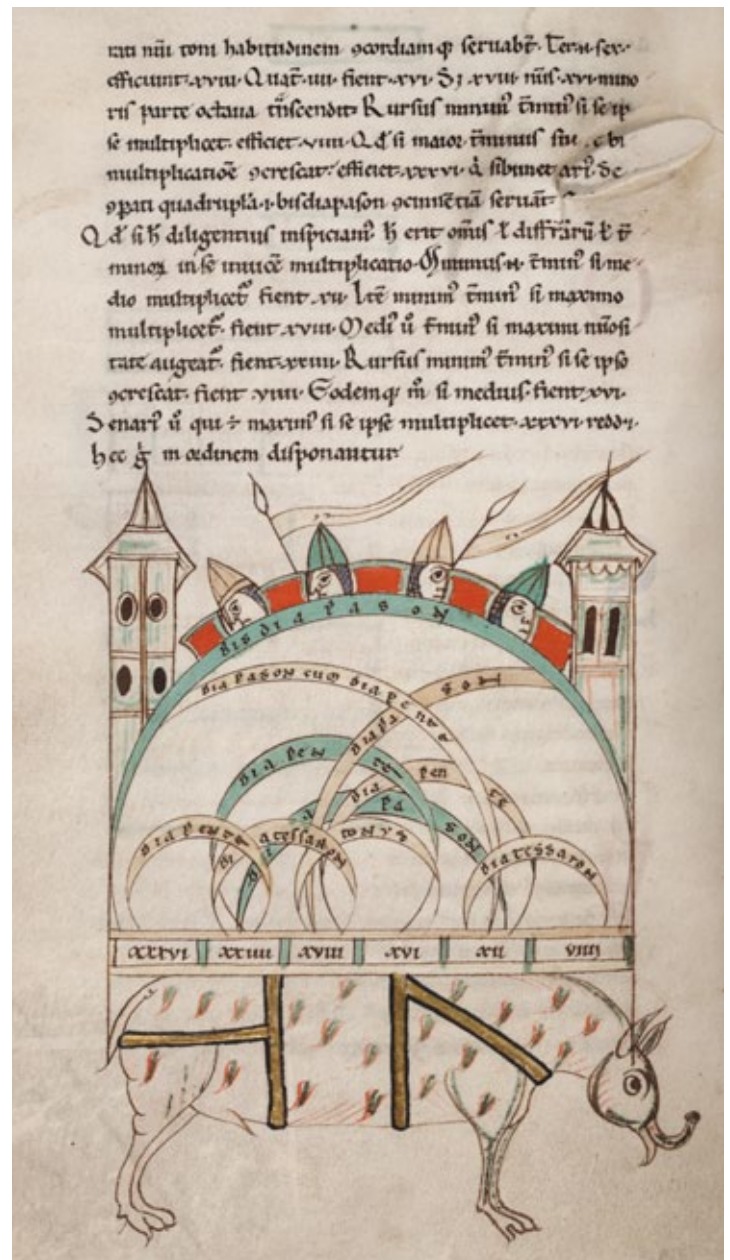 rati nũi toni habitudinem ꝯcordiamqꝫ seruabt̄. Ter n̄ sex·
efficiunt·xviii·Quat̄·iiii·fient·xvi·S; xviii·nũs·xvi·mino
ris parte octaua t̃nscendit· Rursus minimꝰ t̃minꝰ si se ip
se multiplicet· efficiet·viiii·Qd̕ si maior t̃minus sui
multiplicatiõe ꝯcrescat· efficiet·xxxvi·
ꝯparati quadrupla·i·bisdiapason seruat̄·
Qd̕ si h̄ diligentius inspiciamꝰ h̄ erit om̃is
minoꝝ in se inuicẽ multiplicatio· Minimus n̄ t̃minꝰ si me
dio multiplicet̄ fient·xii· Itẽ minimꝰ t̃minꝰ si maximo
multiplicet̄· fient·xviii· Mediꝰ ũ t̃minꝰ si maximi nũosi
tate augeat̄· fient·xxiiii· Rursus minimꝰ t̃minꝰ si se ipso
ꝯcrescat· fient·viiii· Eodemqꝫ m̊ si medius· fient·xvi·
Senariꝰ ũ qui ÷ maximꝰ si se ipse multiplicet·xxxvi·reddi·
hec g̊ in ordinem disponantur
BISDIAPASON
DIAPASON CUM DIAPENTE
DIAPASON
DIAPENTE
DIAPENTE
DIAPASON
DIAPENTE
DIATESSARON
TONVS
DIATESSARON
xxxvi xxiiii xviii xvi xii viiii